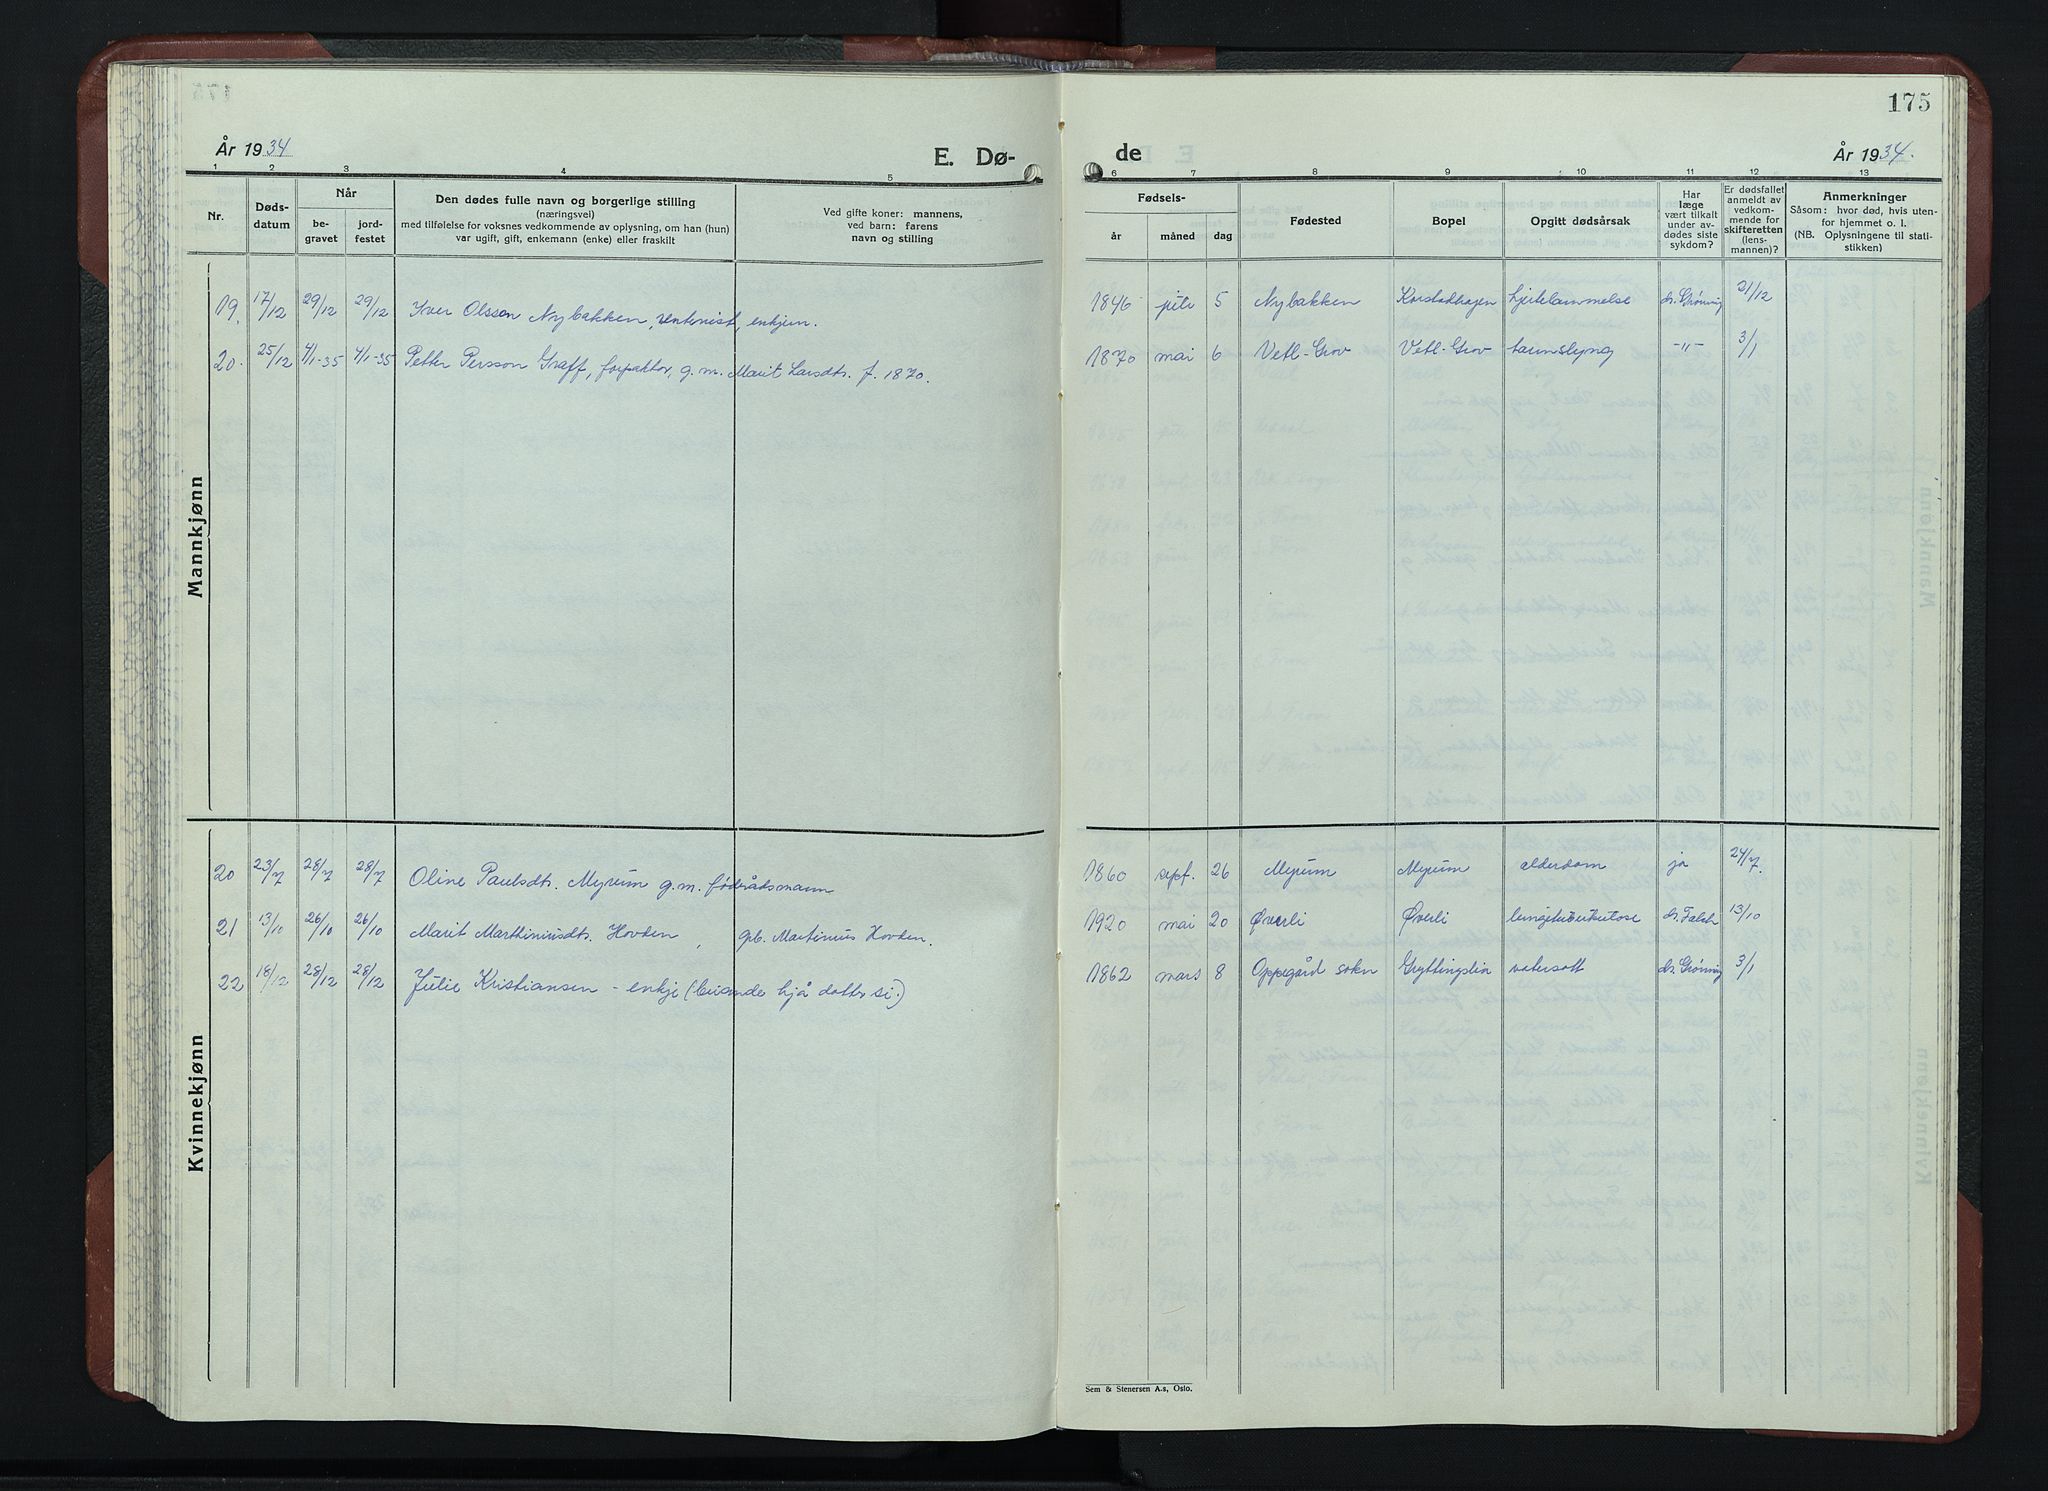 175
År 1934
E. Dø-
de
År 1934.
1 2 3 4 5 6 7 8 9 10 11 12 13
Nr.
Døds-
datum
Når
be-
gravet
jord-
festet
Den dødes fulle navn og borgerlige stilling
(næringsvei)
med tilføielse for voksnes vedkommende av oplysning, om han (hun)
var ugift, gift, enkemann (enke) eller fraskilt
Ved gifte koner: mannens,
ved barn: farens
navn og stilling
Fødsels-
år
måned
dag
Fødested
Bopel
Opgitt dødsårsak
Har
læge
vært tilkalt
under av-
dødes siste
sykdom?
Er dødsfallet
anmeldt av
vedkom-
mende for
skifteretten
(lens-
mannen)?
Anmerkninger
Såsom: hvor død, hvis uten-
for hjemmet o. l.
(NB. Oplysningene til stati-
stikken)
Mannkjønn
19. 17/12 29/12 29/12 Iver Olsson Nybakken, enkjem. 1846 5 Nybakken hjertelammelse dr. Grønning 21/12
20. 25/12 4/1-35 4/1-35 Petter Persson Graff, forpaktar, g. m. Marit Larsdtr. f. 1870. 1870 mai 6 Vetl-Grov Vetl-Grov tarmslyng -"- 3/1
Kvinnekjønn
20 23/7 28/7 28/7 Oline Paulsdtr. Myrum g. m. føderådsmann 1860 sept. 26 Myrum Myrum alderdom ja 24/7.
21 13/10 26/10 26/10 Marit Marthiniusdtr. Hovden, gb. Martinius Hovden. 1920 mai 20 Øverli Øverli lungetuberkulose dr. Falch 13/10
22 18/12 28/12 28/12 Julie Kristiansen - enkje (buande hjå dotter si.) 1862 mars 8 Oppegård sokn Gryttingslia vatersott dr. Grønning 3/1
Sem & Stenersen A.s, Oslo.